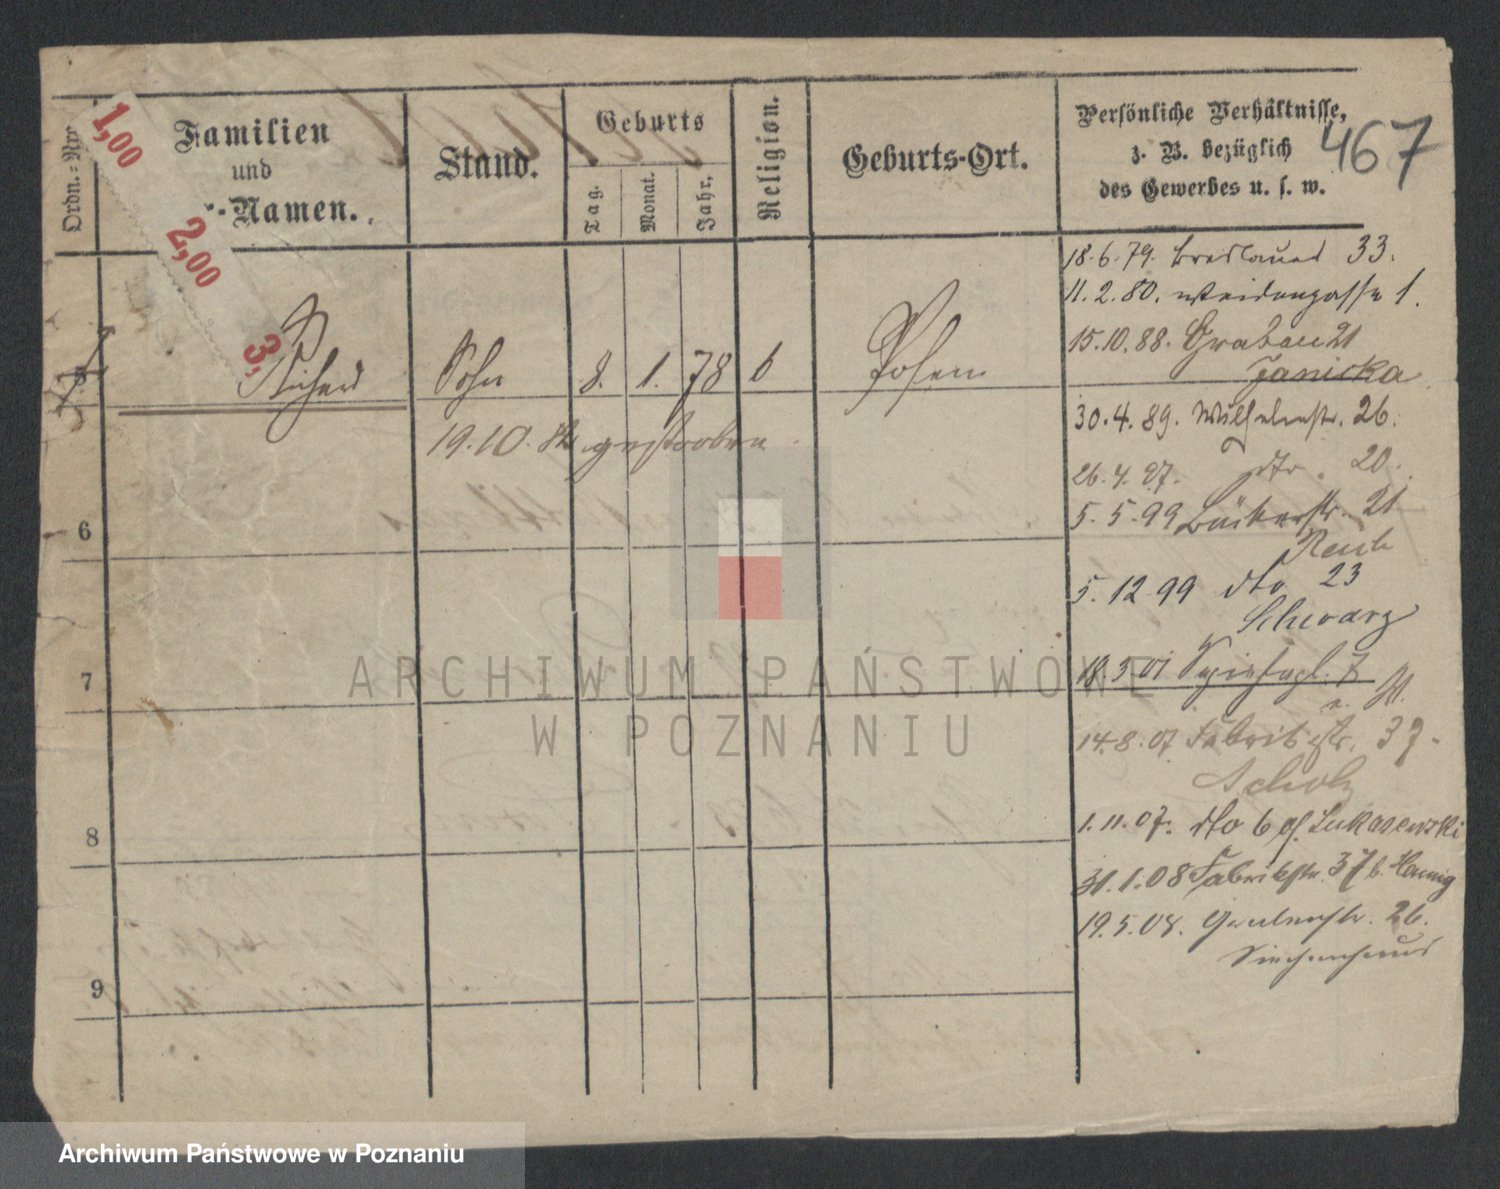 467
Ordn.-Nro
Familien
und
-Namen.
Stand.
Geburts
Tag.
Monat.
Jahr.
Religion.
Geburts-Ort.
Persönliche Verhältnisse,
z. B. bezüglich
des Gewerbes u. s. w.
1,00
2,00
3,
5 Richard Sohn 8. 1. 78 Posen
19.10. gestorben
6
7
8
9
18.6.79. Breslauer 33.
11.2.80. Weidengasse 1.
15.10.88. Graben 21
Janicka
30.4.89. Wilhelmstr. 26.
26.4.97. dto. 20.
5.5.99 Bäckerstr. 21
5.12 99 dto 23
Schwarz
18.5.01 7
14.8.07 Fabrikstr. 37.
Scholz
1.11.07. dto 6 Lukaszewski
31.1.08 Fabrikstr. 37 b. Hannig
19.5.08. Grabenstr. 26.
Siechenhaus
ARCHIWUM PAŃSTWOWE
W POZNANIU
Archiwum Państwowe w Poznaniu